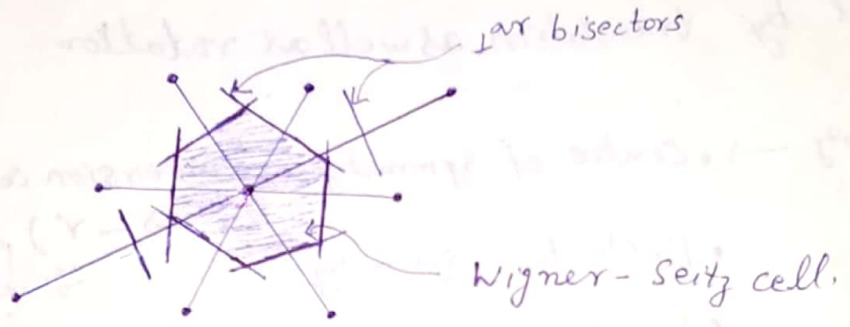 ⊥ar bisectors
Wigner-Seitz cell.